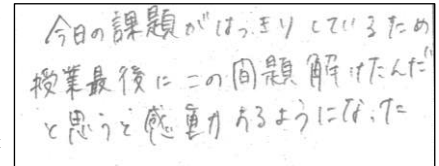 今日の課題がはっきりしているため
授業最後にこの問題解けたんだ
と思うと感動するようになった